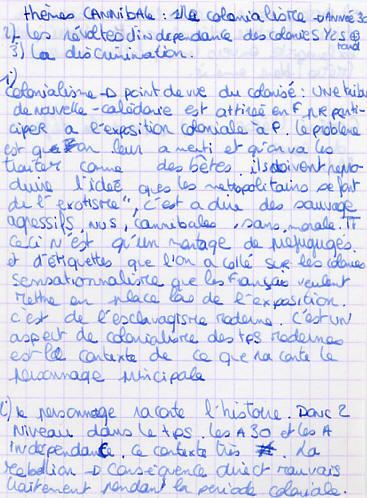 thèmes CANNIBALE : 1) la colonialisme -D ANNÉE 30
2) les révoltes d'indépendance des colonies YES ⊕ tard
3) la discrimination.
1)
colonialisme -D point de vue du colonisé : UNE tribu
de nouvelle-calédonie est attirée en F pr parti-
ciper à l'exposition coloniale à P. le problème
est qu'on leur a menti et qu'on va les
traiter comme des bêtes. ils doivent repro-
duire l'idée que les métropolitains se font
de l'"exotisme", c'est à dire des sauvage
agressifs, nus, cannibales, sans morale. Tt
ceci n'est qu'un montage de préjugugés
et d'étiquettes que l'on a collé sur les colonies
sensationnalisme que les français veulent
mettre en place los de l'exposition.
c'est de l'esclavagisme moderne. C'est un
aspect de colonialisme des tps modernes
est le contexte de ce que raconte le
personnage principale
2) le personnage raconte l'histoire. Donc 2
Niveau dans le tps. les A 30 et les A
indépendance. ce contexte très #. La
rebellion -D conséquence direct mauvais
traitement pendant la période coloniale.